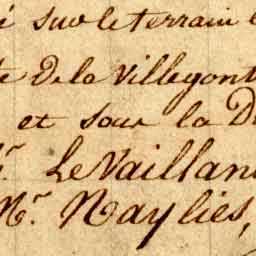 é sur le terrain
te de la Villegont
et sous la D
r LeVaillan
Mr Naylies,